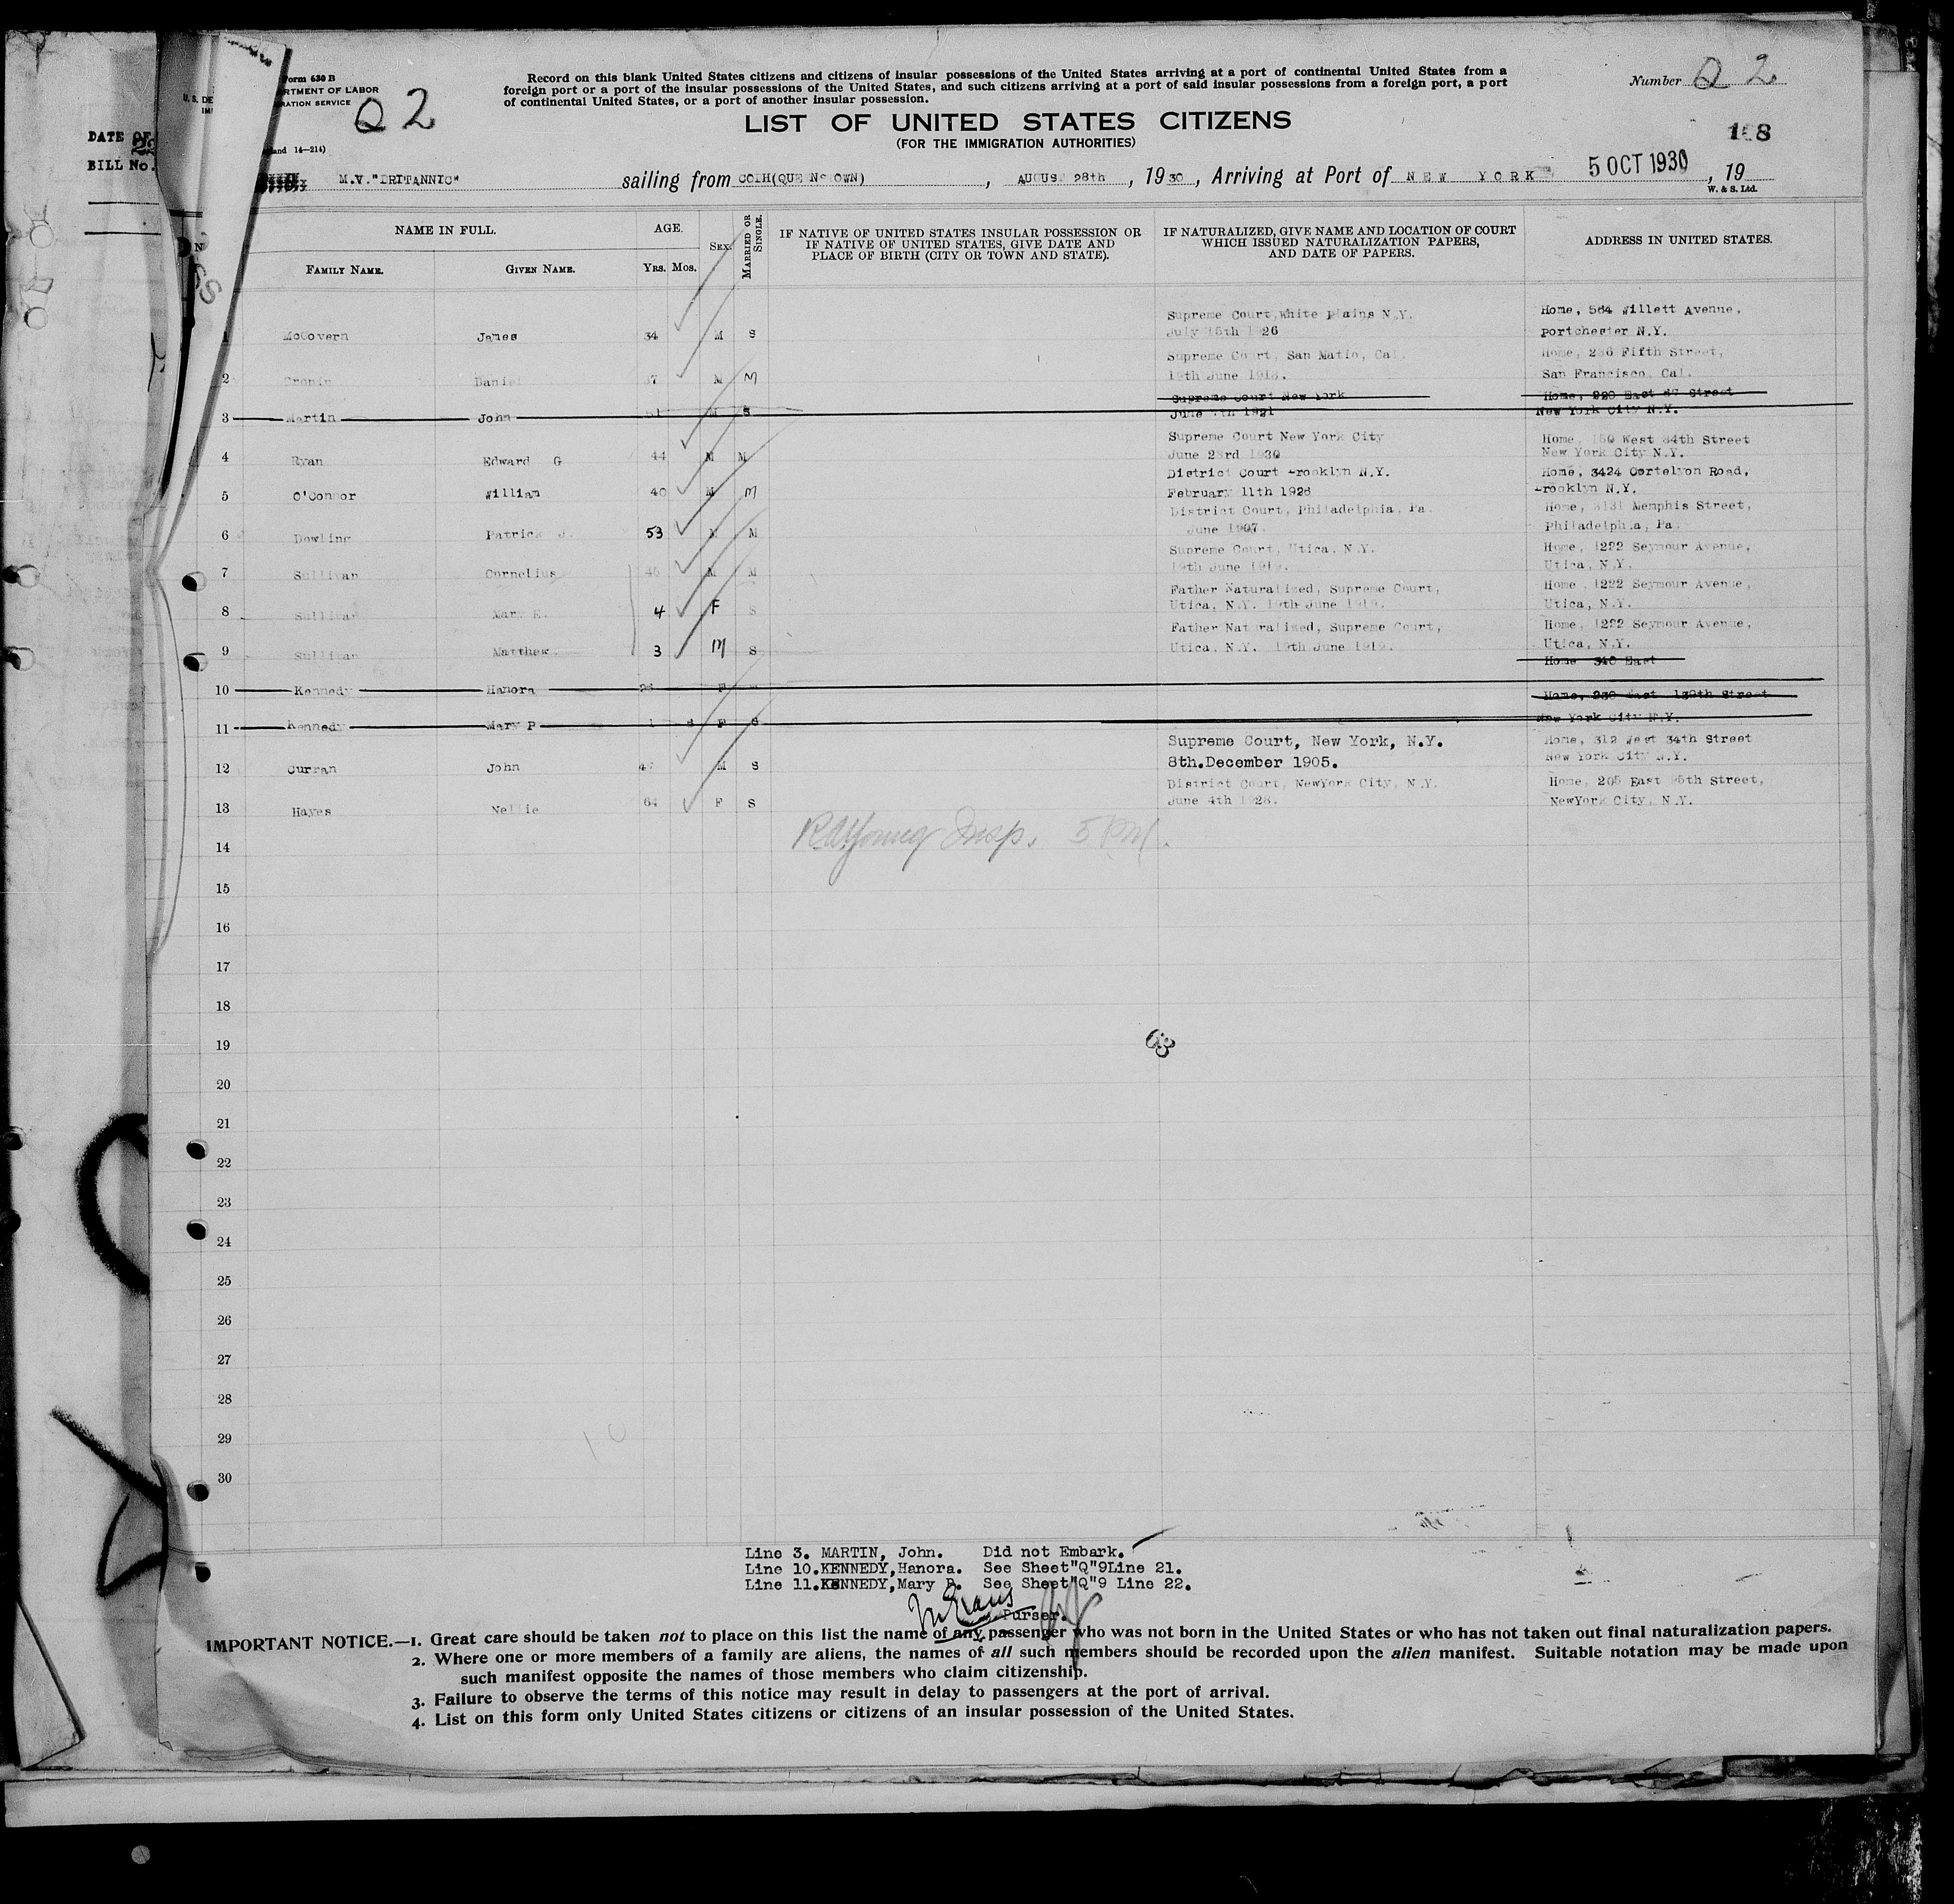 Form 630 B
U. S. DE RTMENT OF LABOR
RATION SERVICE
Q 2
Record on this blank United States citizens and citizens of insular possessions of the United States arriving at a port of continental United States from a
foreign port or a port of the insular possessions of the United States, and such citizens arriving at a port of said insular possessions from a foreign port, a port
of continental United States, or a port of another insular possession.
Number Q 2
LIST OF UNITED STATES CITIZENS
(FOR THE IMMIGRATION AUTHORITIES)
168
DATE OF
BILL No.
land 14—214)
M.V."BRITANNIC" sailing from COBH(QUEENSTOWN), AUGUST 28th, 1930, Arriving at Port of NEW YORK 5 OCT 1930, 19
W. & S. Ltd.
NAME IN FULL.
FAMILY NAME. GIVEN NAME.
AGE.
YRS. MOS.
SEX.
MARRIED OR SINGLE.
IF NATIVE OF UNITED STATES INSULAR POSSESSION OR
IF NATIVE OF UNITED STATES, GIVE DATE AND
PLACE OF BIRTH (CITY OR TOWN AND STATE).
IF NATURALIZED, GIVE NAME AND LOCATION OF COURT
WHICH ISSUED NATURALIZATION PAPERS,
AND DATE OF PAPERS.
ADDRESS IN UNITED STATES.
Supreme Court,White Plains N.Y. Home, 584 Willett Avenue,
1 McGovern James 34 M S July 15th 1926 Portchester N.Y.
Supreme Court, San Matio, Cal. Home, 236 Fifth Street,
2 Cronin Daniel 37 M M 19th June San Francisco, Cal.
Supreme Court New York Home, 220 East Street
3 Martin John M S June 1921 New York City N.Y.
Supreme Court New York City Home, West 84th Street
4 Ryan Edward G 44 M M June 23rd 1930 New York City N.Y.
District Court Brooklyn N.Y. Home, 3424 Cortelyon Road,
5 O'Connor William 40 M M February 11th 1928 Brooklyn N.Y.
District Court, Philadelphia, Pa. Home, 3131 Memphis Street,
6 Dowling Patrick J. 53 M M June 1907. Philadelphia, Pa.
Supreme Court, Utica, N.Y. Home, 1222 Seymour Avenue,
7 Sullivan Cornelius M M 19th June 1919. Utica, N.Y.
Father Naturalized, Supreme Court, Home, 1222 Seymour Avenue,
8 Sullivan Mary E. 4 F S Utica, N.Y. 19th June 1919. Utica, N.Y.
Father Naturalized, Supreme Court, Home, 1222 Seymour Avenue,
9 Sullivan Matthew 3 M S Utica, N.Y. 19th June 1919. Utica, N.Y.
Home 340 East
10 Kennedy Hanora F
Home, East 139th Street
11 Kennedy Mary P 1 8 F S New York City N.Y.
Supreme Court, New York, N.Y. Home, 312 West 34th Street
12 Curran John M S 8th.December 1905. New York City N.Y.
District Court, NewYork City, N.Y. Home, 205 East 95th Street,
13 Hayes Nellie 64 F S June 4th 1928. NewYork City, N.Y.
14
R A Young Insp. 5 PM.
15
16
17
18
19
63
20
21
22
23
24
25
26
27
28
29
30
Line 3. MARTIN, John. Did not Embark.
Line 10.KENNEDY,Hanora. See Sheet"Q"9Line 21.
Line 11.KENNEDY,Mary P. See Sheet"Q"9 Line 22.
Purser.
IMPORTANT NOTICE.—1. Great care should be taken not to place on this list the name of any passenger who was not born in the United States or who has not taken out final naturalization papers.
2. Where one or more members of a family are aliens, the names of all such members should be recorded upon the alien manifest. Suitable notation may be made upon
such manifest opposite the names of those members who claim citizenship.
3. Failure to observe the terms of this notice may result in delay to passengers at the port of arrival.
4. List on this form only United States citizens or citizens of an insular possession of the United States.